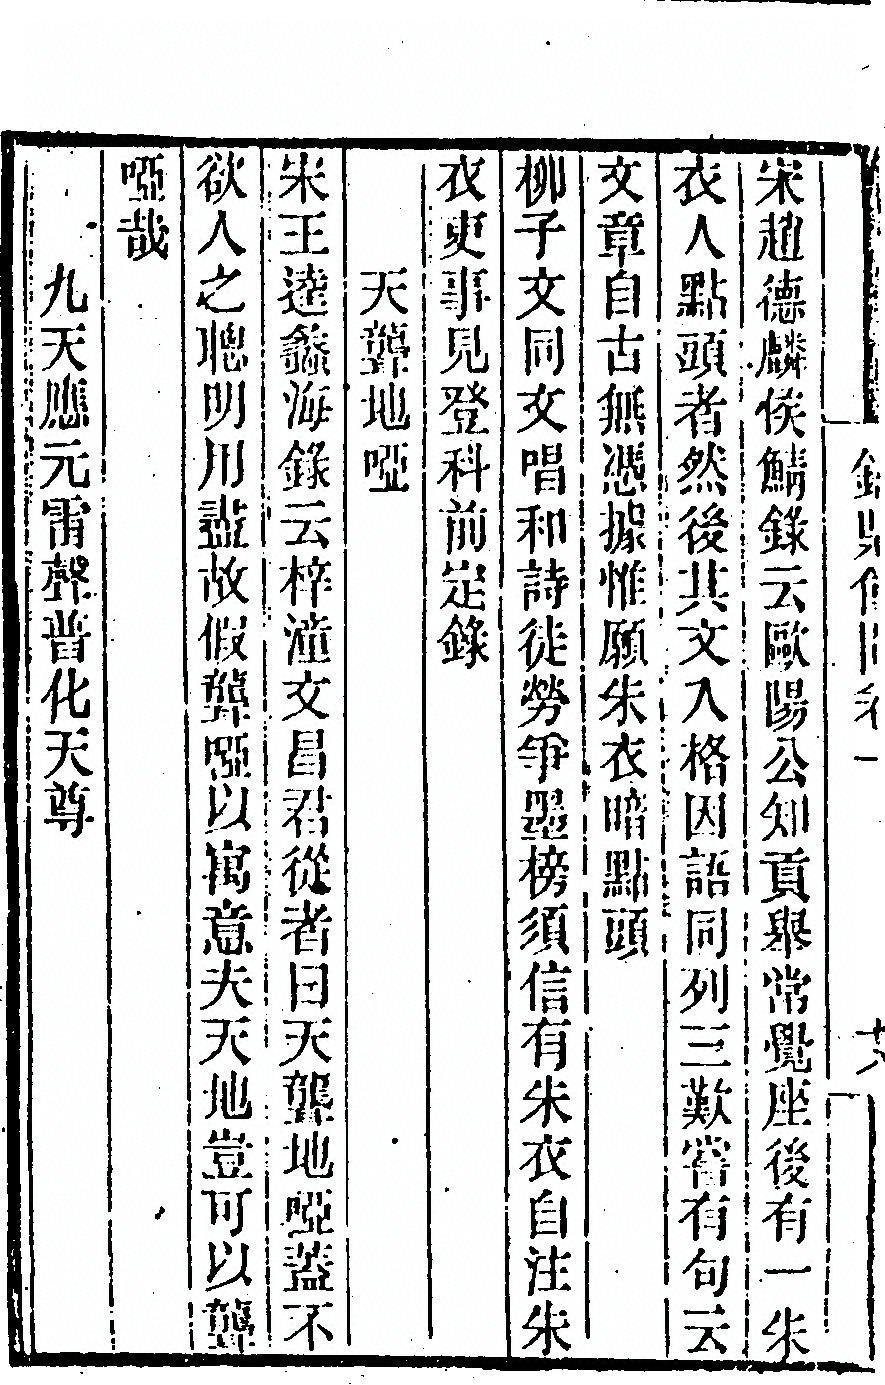 宋趙德麟侯鯖錄云歐陽公知貢舉常覺座後有一朱
衣人點頭者然後其文入格因語同列三歎嘗有句云
文章自古無憑據惟願朱衣暗點頭
柳子文同文唱和詩徒勞爭墨榜須信有朱衣自注朱
衣吏事見登科前定錄
天聾地啞
宋王逵蠡海錄云梓潼文昌君從者曰天聾地啞蓋不
欲人之聰明用盡故假聾啞以寓意夫天地豈可以聾
啞哉
九天應元雷聲普化天尊